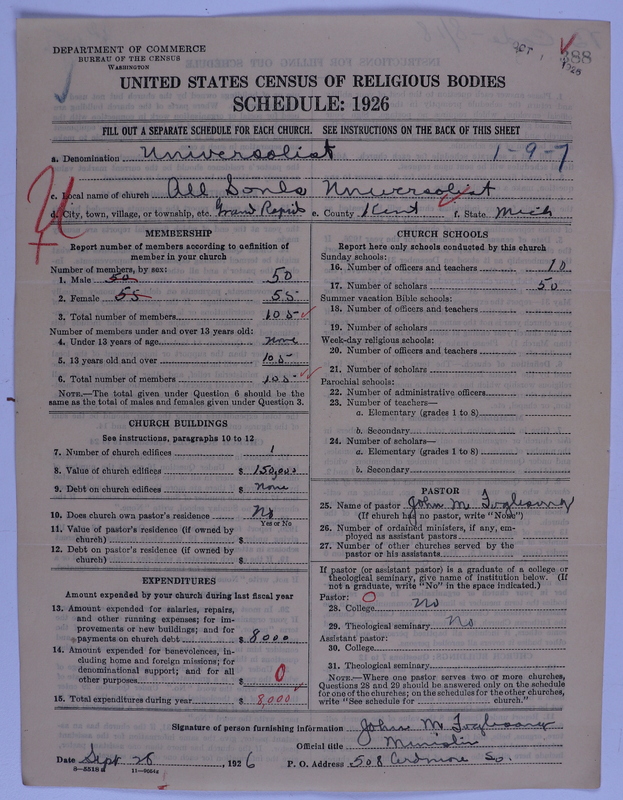 DEPARTMENT OF COMMERCE
BUREAU OF THE CENSUS
WASHINGTON
OCT 1 1926
388
UNITED STATES CENSUS OF RELIGIOUS BODIES
SCHEDULE: 1926
FILL OUT A SEPARATE SCHEDULE FOR EACH CHURCH. SEE INSTRUCTIONS ON THE BACK OF THIS SHEET
a. Denomination Universalist 1-9-7
c. Local name of church All Souls Universalist
d. City, town, village, or township, etc. Grand Rapids e. County Kent f. State Mich
MEMBERSHIP
Report number of members according to definition of
member in your church
Number of members, by sex:
1. Male 50 50
2. Female 55 55
3. Total number of members 105
Number of members under and over 13 years old:
4. Under 13 years of age none
5. 13 years old and over 105
6. Total number of members 105
NOTE.—The total given under Question 6 should be
same as the total of males and females given under Question 3.
CHURCH BUILDINGS
See instructions, paragraphs 10 to 12
7. Number of church edifices 1
8. Value of church edifices $ 150,000
9. Debt on church edifices $ None
10. Does church own pastor's residence No
Yes or No
11. Value of pastor's residence (if owned by
church) $
12. Debt on pastor's residence (if owned by
church) $
EXPENDITURES
Amount expended by your church during last fiscal year
13. Amount expended for salaries, repairs,
and other running expenses; for im-
provements or new buildings; and for
payments on church debt $ 8000
14. Amount expended for benevolences, in-
cluding home and foreign missions; for
denominational support; and for all
other purposes $ 0
15. Total expenditures during year $ 8,000
CHURCH SCHOOLS
Report here only schools conducted by this church
Sunday schools:
16. Number of officers and teachers 10
17. Number of scholars 50
Summer vacation Bible schools:
18. Number of officers and teachers
19. Number of scholars
Week-day religious schools:
20. Number of officers and teachers
21. Number of scholars
Parochial schools:
22. Number of administrative officers
23. Number of teachers—
a. Elementary (grades 1 to 8)
b. Secondary
24. Number of scholars—
a. Elementary (grades 1 to 8)
b. Secondary
PASTOR
25. Name of pastor John M. Foglesong
(If church has no pastor, write "None")
26. Number of ordained ministers, if any, em-
ployed as assistant pastors
27. Number of other churches served by the
pastor or his assistants
If pastor (or assistant pastor) is a graduate of a college or
theological seminary, give name of institution below. (If
not a graduate, write "No" in the space indicated.)
Pastor: 0
28. College No
29. Theological seminary No
Assistant pastor:
30. College
31. Theological seminary
NOTE.—Where one pastor serves two or more churches,
Questions 28 and 29 should be answered only on the schedule
for one of the churches; on the schedules for the other churches,
write "See schedule for church."
Signature of person furnishing information John M. Foglesong
Official title Minister
Date Sept 28, 1926 P. O. Address 508 Ardmore So.
8-5518a 11-9054a